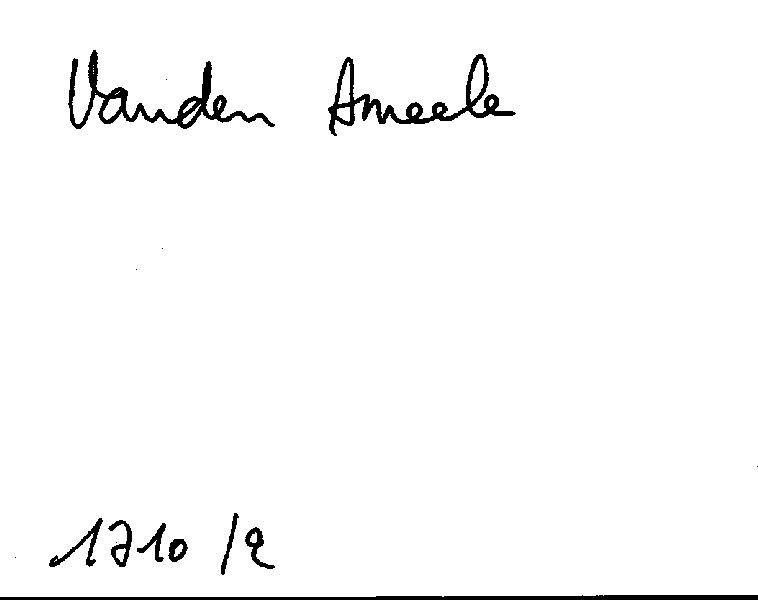 Vanden Ameele
1710 /2